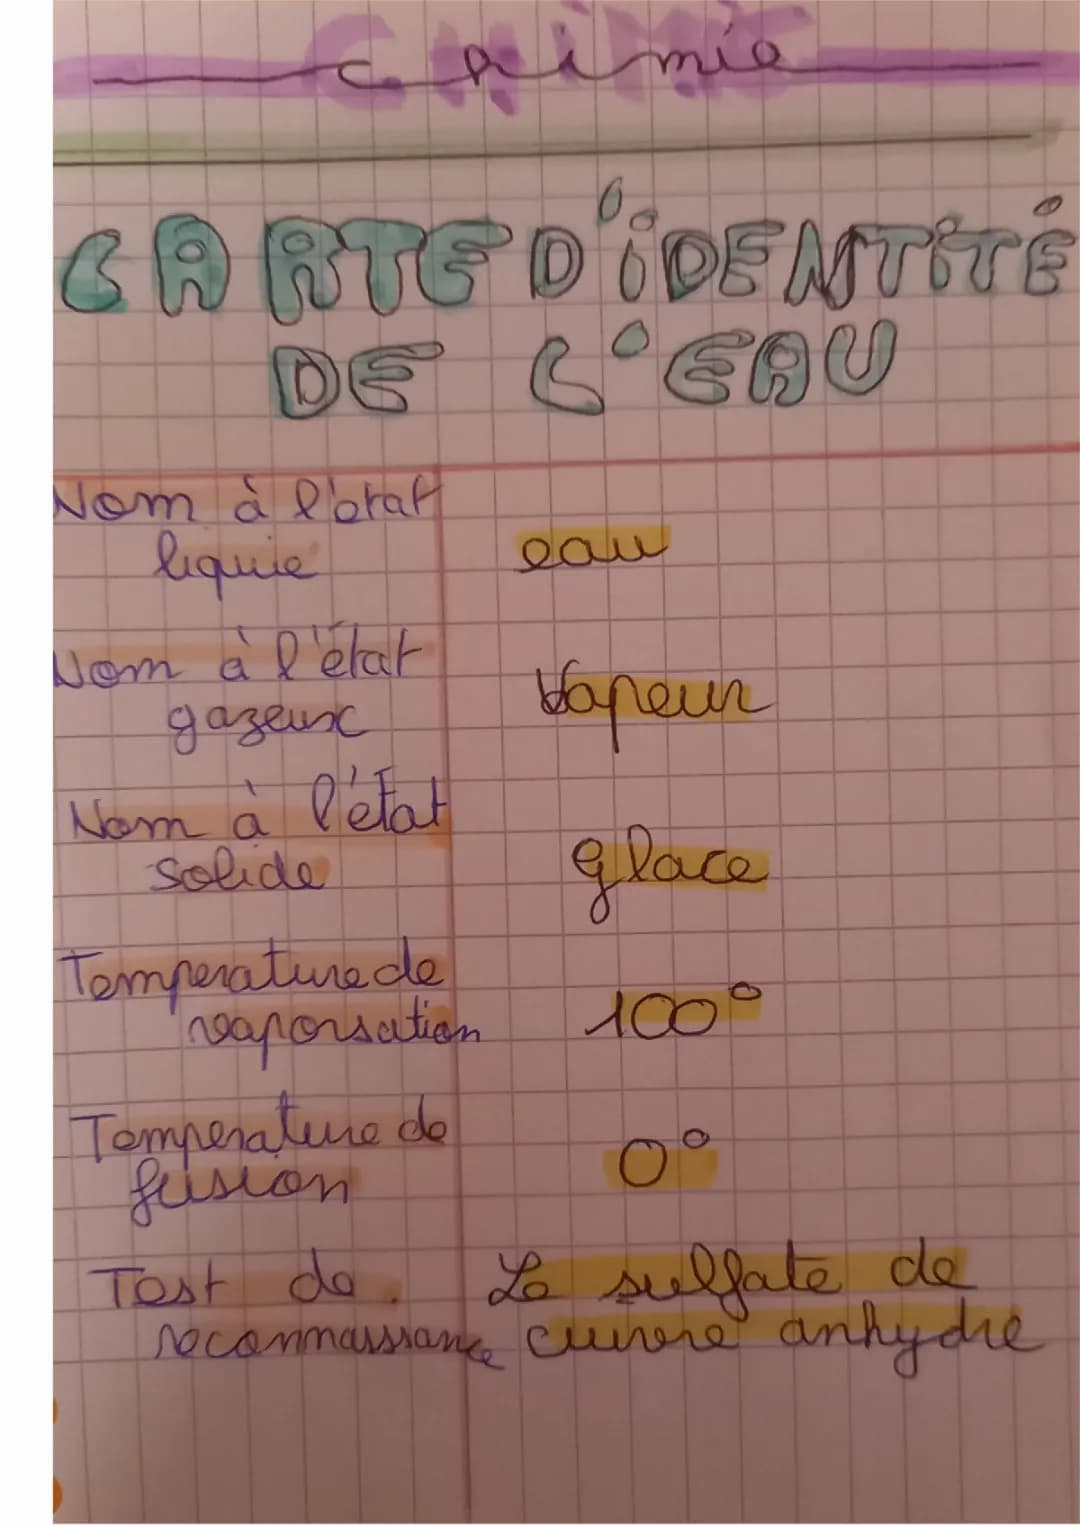 Chimie
CARTE D'IDENTITÉ
DE L'EAU
Nom à l'état
liquie
eau
Nom à l'état
gazeux
Vapeur
Nom à l'état
solide
glace
Temperature de
vaporsation
100°
Temperature de
fusion
0°
Test de
reconnaissance
Le sulfate de
cuivre anhydre